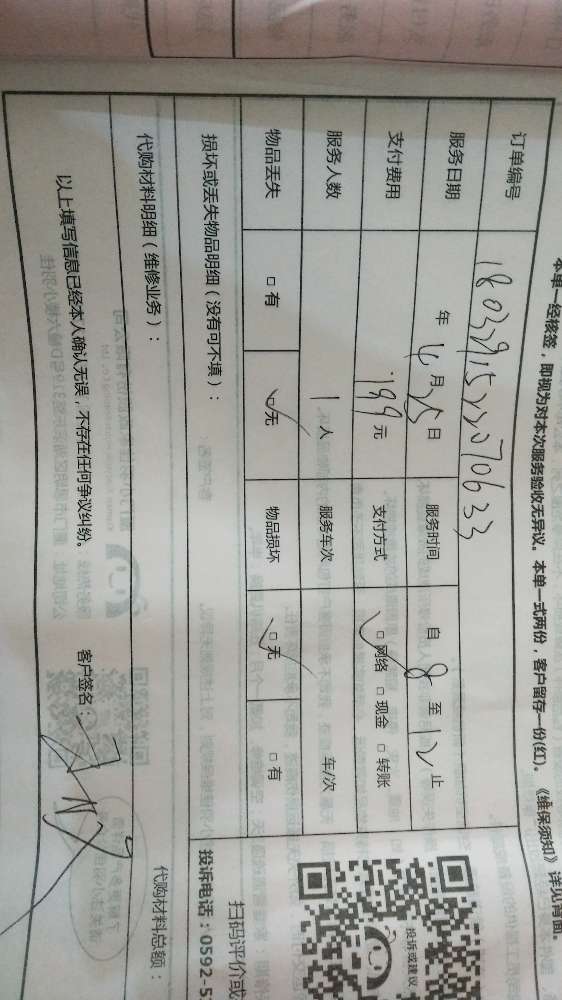 本单一经核签，即视为对本次服务验收无异议。本单一式两份，客户留存一份(红)。《维保须知》详见背面。
订单编号
服务日期 年 4月25日 服务时间 自 8 至 12 止
支付费用 199 元 支付方式 □网络 □现金 □转账
服务人数 1 人 服务车次 车/次
物品丢失 □有 □无 物品损坏 □无 □有
损坏或丢失物品明细（没有可不填）：
代购材料明细（维修业务）： 代购材料总额：
以上填写信息已经本人确认无误，不存在任何争议纠纷。 客户签名：
投诉或建议
扫码评价或
投诉电话：0592-5